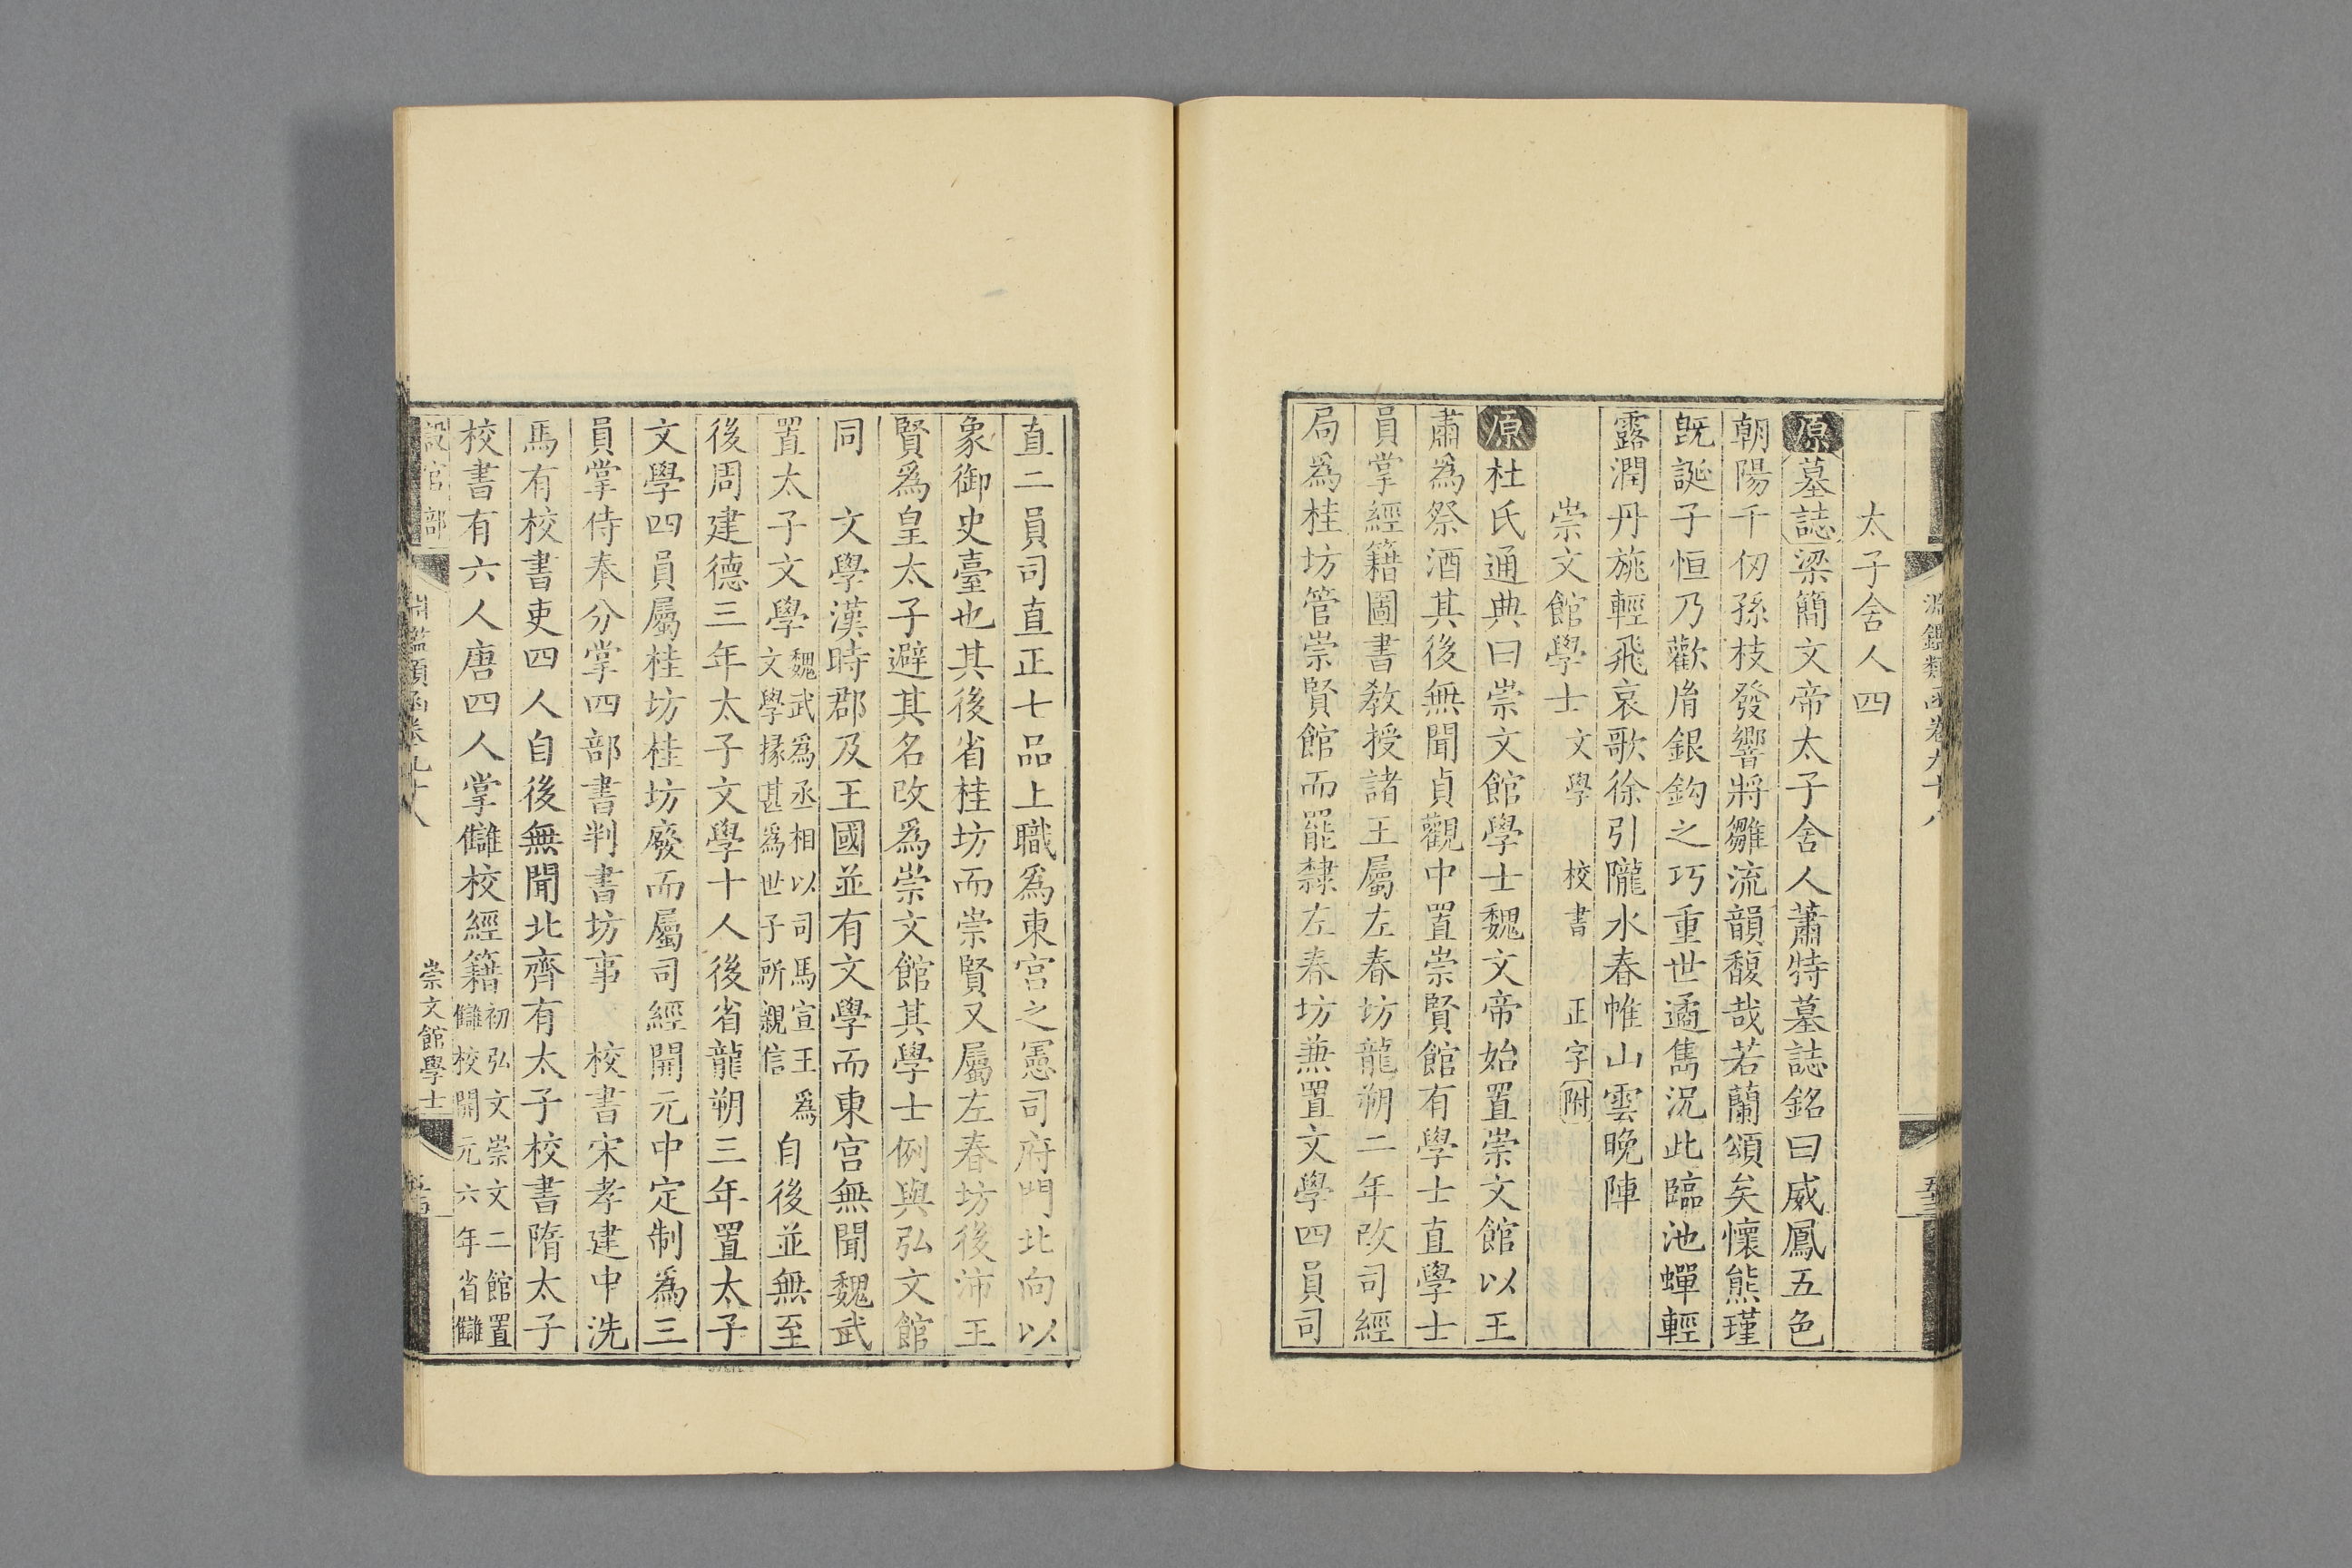 淵鑑類函卷九十八
太子舍人四
原墓誌梁簡文帝太子舍人蕭特墓誌銘曰威鳳五色
朝陽千仞孫枝發響將雛流韻馥哉若蘭頌矣懷熊瑾
旣誕子恒乃歡㑗銀鈎之巧重世遹雋況此臨池蟬輕
露潤丹旐輕飛哀歌徐引隴水春帷山雲晚陣
崇文館學士 文學 校書 正字附
原杜氏通典曰崇文館學士魏文帝始置崇文館以王
肅爲祭酒其後無聞貞觀中置崇賢館有學士直學士
員掌經籍圖書敎授諸王屬左春坊龍朔二年改司經
局爲桂坊管崇賢館而罷隸左春坊兼置文學四員司
直二員司直正七品上職爲東宮之憲司府門北向以
象御史臺也其後省桂坊而崇賢又屬左春坊後沛王
賢爲皇太子避其名改爲崇文館其學士例與弘文館
同 文學漢時郡及王國並有文學而東宮無聞魏武
置太子文學魏武爲丞相以司馬宣王爲文學掾甚爲世子所親信自後並無至
後周建德三年太子文學十人後省龍朔三年置太子
文學四員屬桂坊桂坊廢而屬司經開元中定制爲三
員掌侍奉分掌四部書判書坊事 校書宋孝建中洗
馬有校書吏四人自後無聞北齊有太子校書隋太子
校書有六人唐四人掌讎校經籍初弘文崇文二館置讎校開元六年省讎
設官部 淵鑑類函卷九十八 崇文館學士